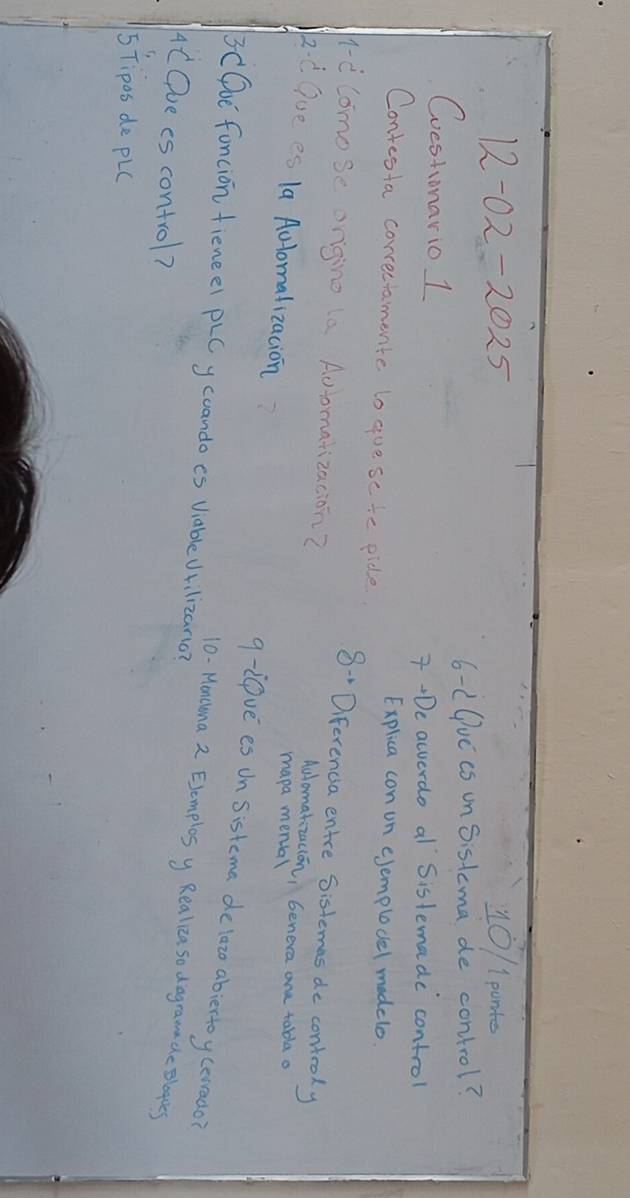 12-02-2025
Cuestionario 1
Contesta correctamente lo que se te pide.
1-¿Cómo se origino la Automatización?
2-¿Que es la Automatización?
3¿Qué función tiene el PLC y cuando es Viable Utilizarlo?
4¿Que es control?
5 Tipos de PLC
10/1 punto
6-¿Qué es un Sistema de control?
7→De acuerdo al Sistema de control
Explica con un ejemplo del modelo.
8→Diferencia entre Sistemas de control y
Automatización, Genera una tabla o
mapa mental
9-¿Qué es un Sistema de lazo abierto y Cerrado?
10-Menciona 2 Ejemplos y Realiza so diagrama de Bloques